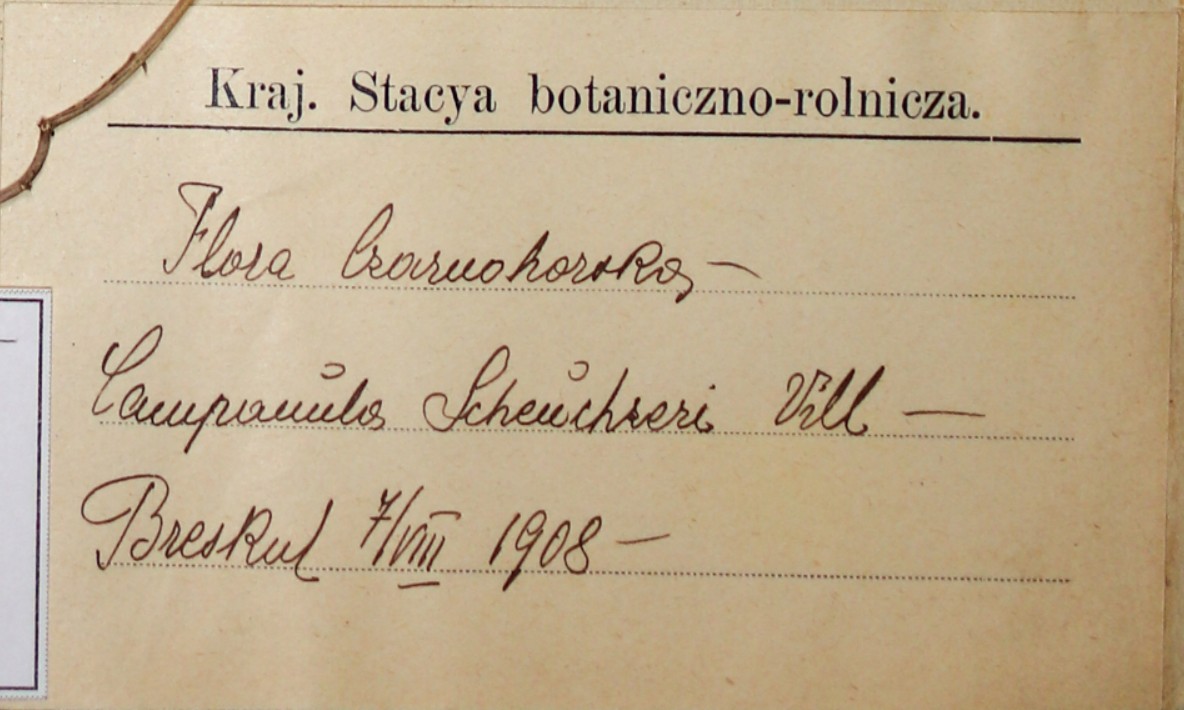 Kraj. Stacya botaniczno-rolnicza.
Flora Czarnohorska —
Campanula Scheuchzeri Vill —
Breskul 7/VIII 1908 —